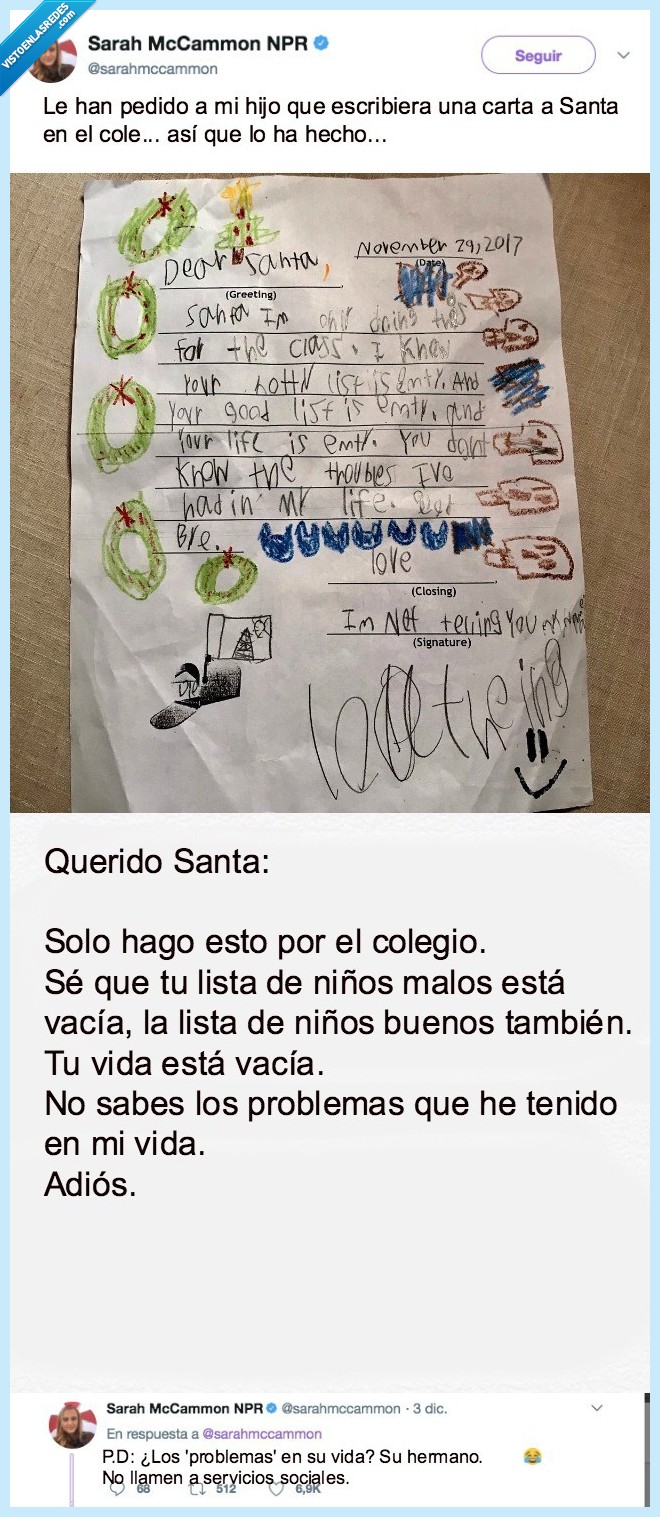 VISTOENLASREDES
.com
Sarah McCammon NPR
@sarahmccammon
Seguir
Le han pedido a mi hijo que escribiera una carta a Santa
en el cole... así que lo ha hecho...
November 29, 2017
(Date)
Dear Santa,
(Greeting)
Santa Im only doing this
for the class. I Know
Your nottN list is Emty. And
Your good list is emty. And
Your life is emty. You dont
Know the troubles Ive
had in my life.
Bye.
love
(Closing)
Im Not telling You my name
(Signature)
Querido Santa:
Solo hago esto por el colegio.
Sé que tu lista de niños malos está
vacía, la lista de niños buenos también.
Tu vida está vacía.
No sabes los problemas que he tenido
en mi vida.
Adiós.
Sarah McCammon NPR @sarahmccammon · 3 dic.
En respuesta a @sarahmccammon
P.D: ¿Los 'problemas' en su vida? Su hermano.
No llamen a servicios sociales.
68 512 6,9K